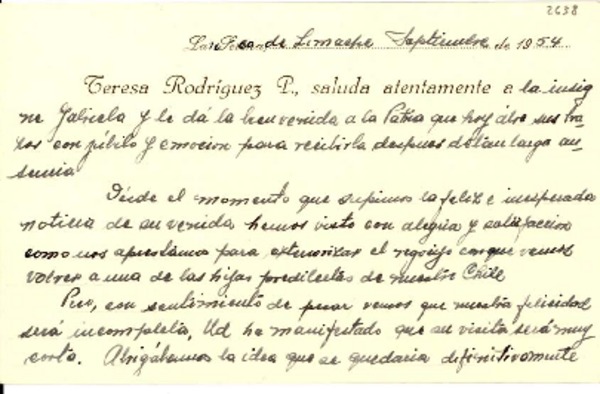 2638
de Limache Septiembre de 1954
Teresa Rodríguez P., saluda atentamente a la insig
ne Gabriela y le dá la bienvenida a la Patria que hoy abre sus bra-
zos con júbilo y emocion para recibirla despues de tan larga au-
sencia
Desde el momento que supimos la feliz e inesperada
noticia de su venida hemos visto con alegria y satisfaccion
como nos aprestamos para exteriorizar el regocijo con que vemos
volver a una de las hijas predilectas de nuestro Chile
Pero, con sentimiento de pesar vemos que nuestra felicidad
será incompleta, Ud ha manifestado que su visita será muy
corta. Abrigábamos la idea que se quedaria definitivamente